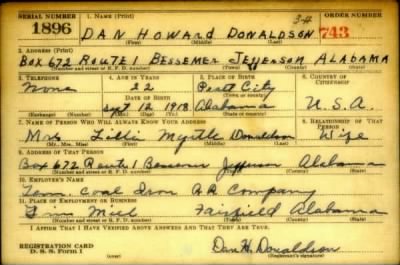 SERIAL NUMBER 1. NAME (Print) ORDER NUMBER
1896 DAN HOWARD DONALDSON 34 743
(First) (Middle) (Last)
2. ADDRESS (Print)
BOX 672 ROUTE 1 BESSEMER JEFFERSON ALABAMA
(Number and street or R. F. D. number) (Town) (County) (State)
3. TELEPHONE 4. AGE IN YEARS 5. PLACE OF BIRTH 6. COUNTRY OF CITIZENSHIP
None 22 Pell City
DATE OF BIRTH
Sept 12 1918 Alabama U.S.A.
(Exchange) (Number) (Mo.) (Day) (Yr.) (State or country)
7. NAME OF PERSON WHO WILL ALWAYS KNOW YOUR ADDRESS 8. RELATIONSHIP OF THAT PERSON
Mrs Lillie Myrtle Donaldson Wife
(Mr., Mrs., Miss) (First) (Middle) (Last)
9. ADDRESS OF THAT PERSON
Box 672 Route 1 Bessemer Jefferson Alabama
(Number and street or R. F. D. number) (Town) (County) (State)
10. EMPLOYER'S NAME
Tenn. Coal Iron R.R. Company
11. PLACE OF EMPLOYMENT OR BUSINESS
Mill Fairfield Alabama
(Number and street or R. F. D. number) (Town) (County) (State)
I AFFIRM THAT I HAVE VERIFIED ABOVE ANSWERS AND THAT THEY ARE TRUE.
REGISTRATION CARD
D. S. S. FORM 1 Dan H. Donaldson
(Registrant's signature)